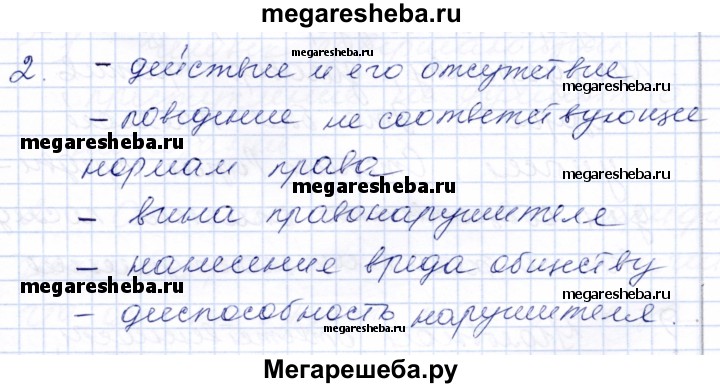 megaresheba.ru
megaresheba.ru
2. - действие и его отсутствие
megaresheba.ru
- поведение не соответствующее
megaresheba.ru
нормам права
megaresheba.ru
- вина правонарушителя
megaresheba.ru
- нанесение вреда обществу
megaresheba.ru
megaresheba.ru
- дееспособность нарушителя.
megaresheba.ru
Мегарешеба.ру